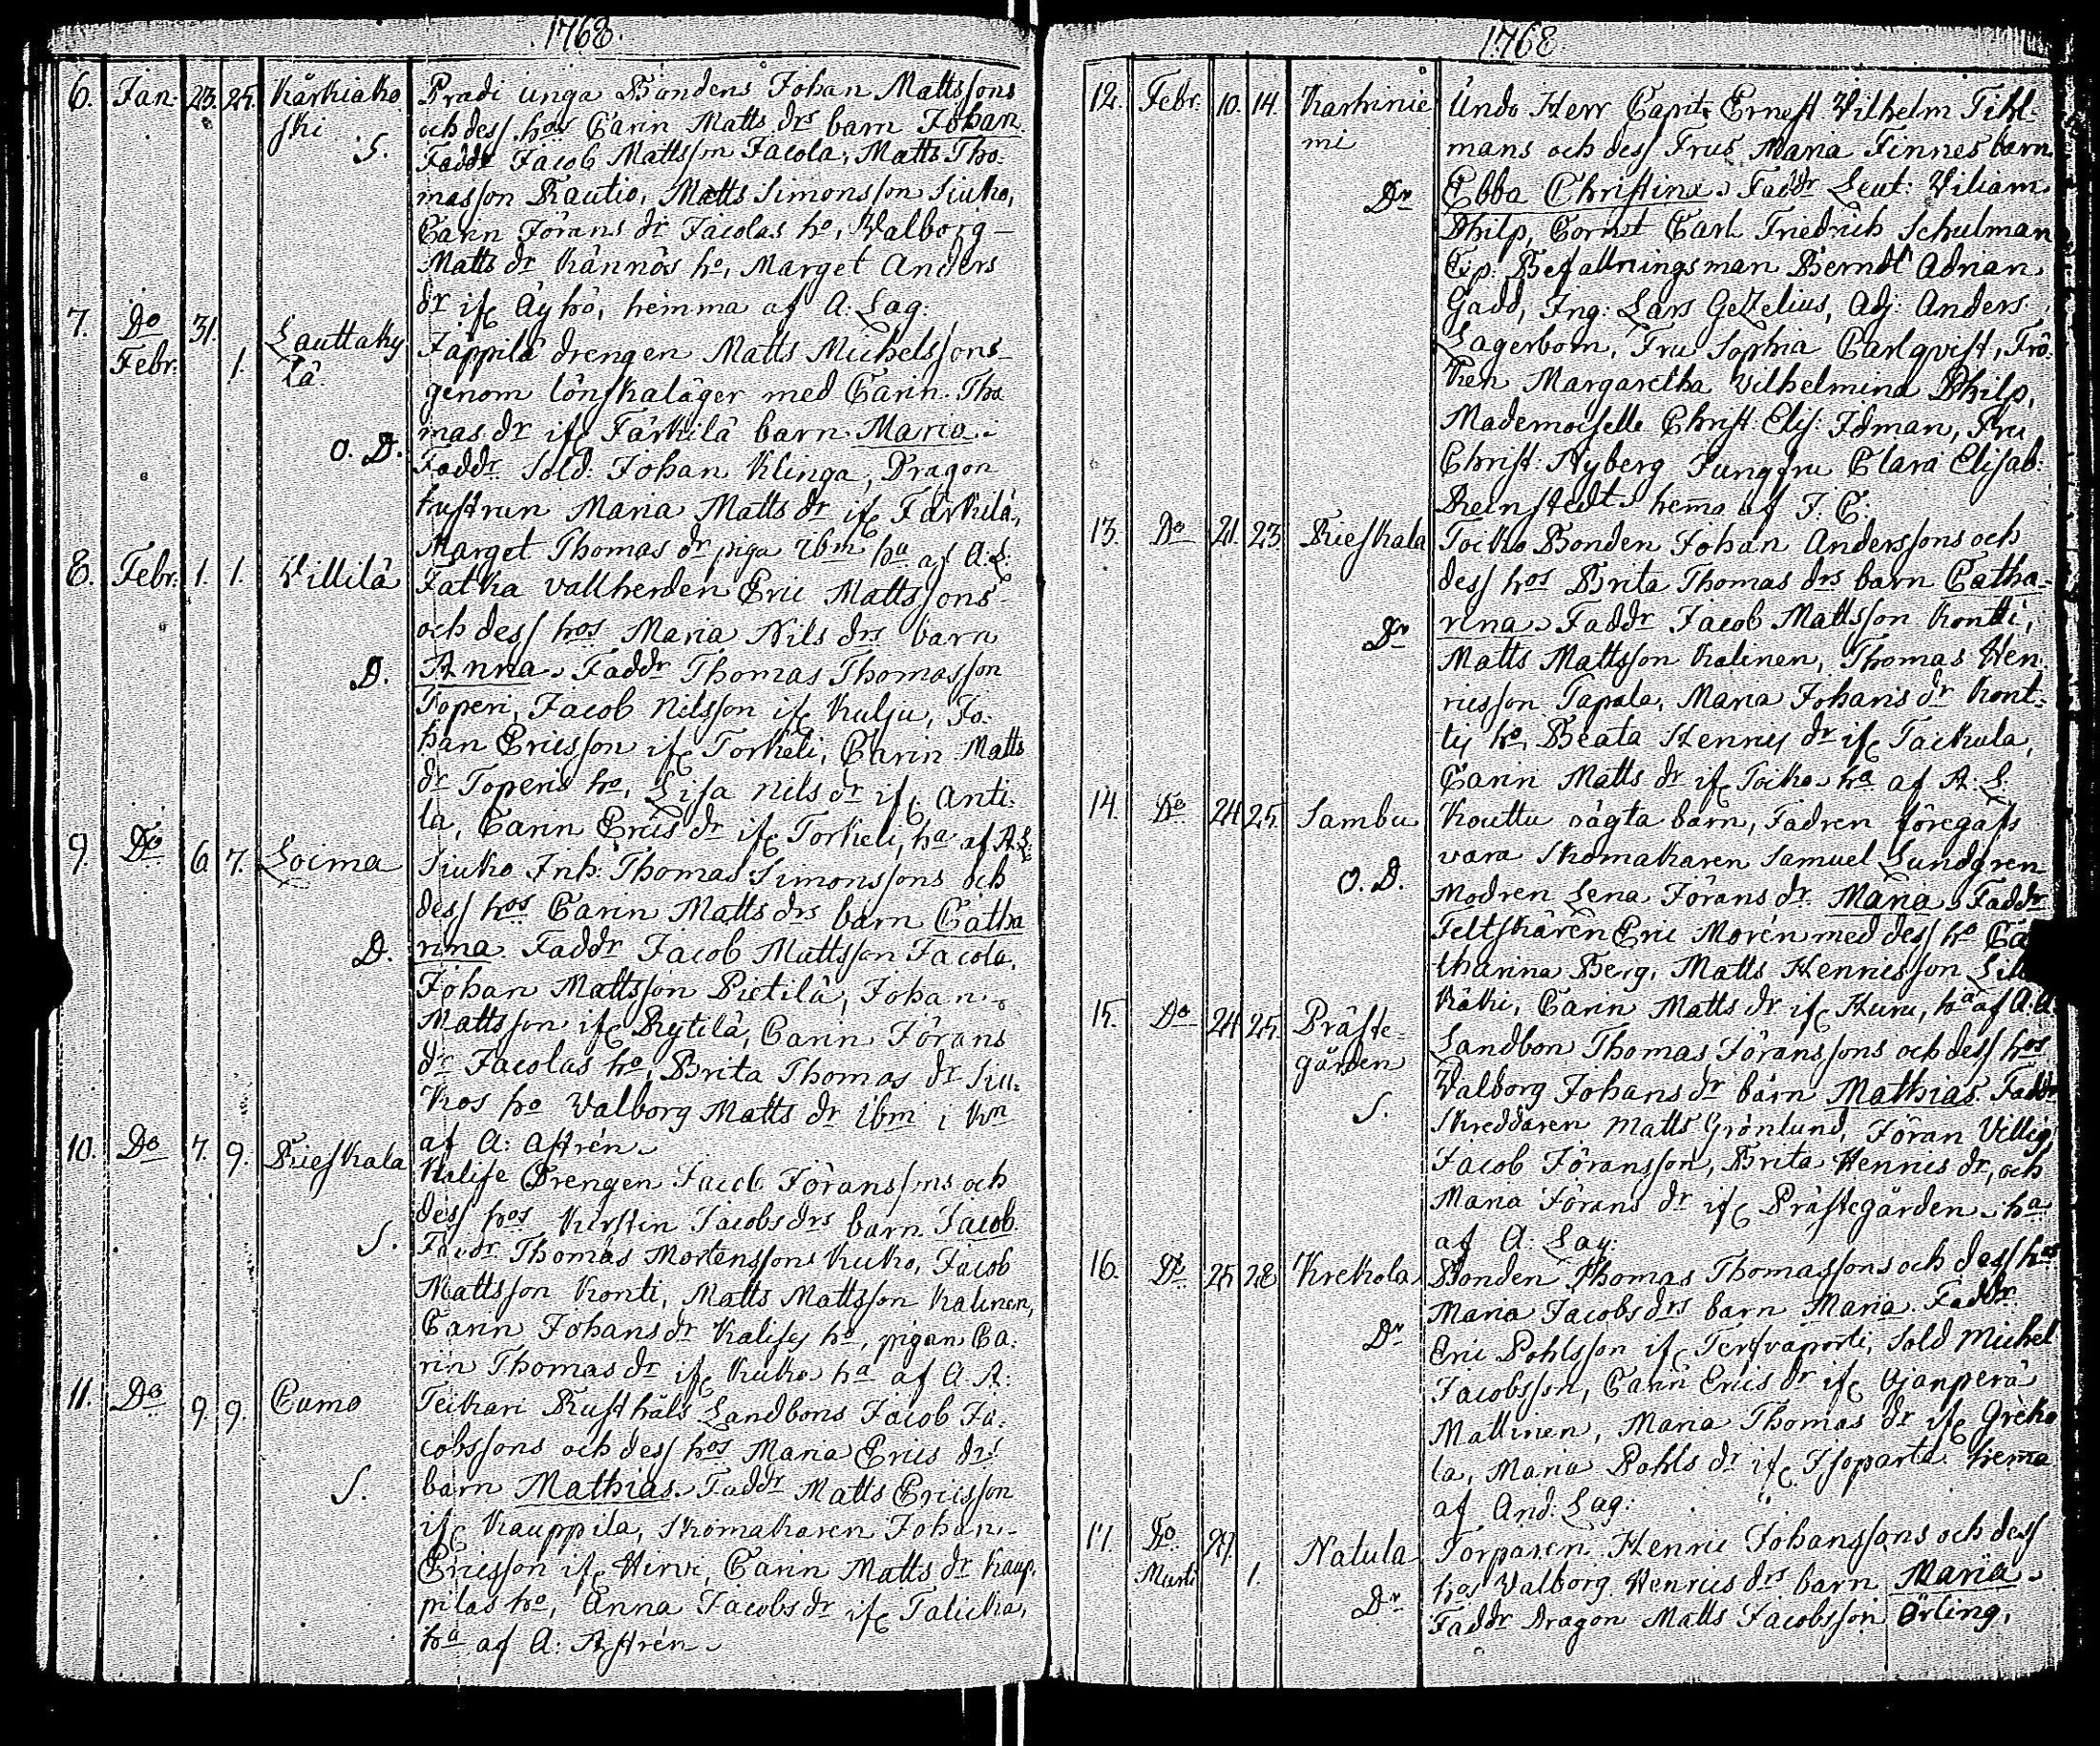 1768.
6. Jan. 23. 25. Kärkiako
ski
S.
Pradi unga Bondens Johan Mattssons
och dess hos Carin Matts drs barn Johan.
Faddr Jacob Mattsson Jacola, Matts Tho-
masson Rautio, Matts Simonsson Siuko,
Carin Jörans dr Jacolas ho, Walborg
Matts dr Kännös ho, Marget Anders
dr if Äyhö, hemma af A: Lag:
7. Do 31. Lauttaky
Febr. 1. lä.
O. D.
Jäppilä drengen Matts Michelssons
genom lönskaläger med Carin Tho
mas dr if Färkilä barn Maria.
Faddr Sold: Johan Klinga, Dragon
hustrun Maria Matts dr if Färkilä,
Marget Thomas dr piga ibm ha af A: L:
8. Febr. 1. 1. Villilä
D.
Jatka vallherden Eric Mattssons
och dess hos Maria Nils drs barn
Anna. Faddr Thomas Thomasson
Toperi, Jacob Nilsson if Kulju, Jo-
han Ericsson if Torkeli, Carin Matts
dr Toperis ho, Lisa Nils dr if Anti-
la, Carin Erics dr if Torkeli, ha af A: L:
9. Do 6. 7. Loima
D.
Siuko Inh: Thomas Simonssons och
dess hos Carin Matts drs barn Catha
rina. Faddr Jacob Mattsson Jacola,
Johan Mattsson Pietilä, Johan
Mattsson if Rytilä, Carin Jörans
dr Jacolas ho, Brita Thomas dr Siu-
kos ho Walborg Matts dr ibm i Kn
af A: Aftrén.
10. Do 7. 9. Pieskala
S.
Kalise Drengen Jacob Jöranssons och
dess hos Kirstin Jacobs drs barn Jacob.
Faddr Thomas Mortensson Kuko, Jacob
Mattsson Konti, Matts Mattsson Kalinen,
Carin Johans dr Kalisis ho, pigan Ca-
rin Thomas dr if Kuko ha af A A:
11. Do 9. 9. Cumo
S.
Teikari Rusthåls Landbons Jacob Ja-
cobssons och dess hos Maria Erics drs
barn Mathias. Faddr Matts Ericsson
if Kauppila, Skomakaren Johan
Ericsson if Hirvi, Carin Matts dr Kaup-
pilas ho, Anna Jacobs dr if Talicka,
ha af A: Aftrén.
1768
12. Febr. 10. 14. Karhinie
mi
Dr
Undo Herr Capit: Ernest Wilhelm Tihl-
mans och dess Frus Maria Finnes barn
Ebba Christina. Faddr Leut: Viliam
Philp, Cornet Carl Friedrich Schulman
Exp: Befallningsman Berndt Adrian
Gadd, Ing: Lars Gezelius, Adj: Anders
Lagerbom, Fru Sophia Carlqvist, Frö-
ken Margaretha Vilhelmina Philp,
Mademoiselle Christ: Elis: Idman, Fru
Christ: Nyberg Jungfru Clara Elisab:
Reinstedt. hema af J: C:
13. Do 21. 23. Pieskala
Dr
Toiko Bonden Johan Anderssons och
dess hos Brita Thomas drs barn Catha-
rina. Faddr Jacob Mattsson Kontti,
Matts Mattsson Kalinen, Thomas Hen-
ricsson Tapala, Maria Johans dr Kont-
tis ho, Beata Henrics dr if Tackula,
Carin Matts dr if Toiko ha af A: L:
14. Do 24 25. Sambu
O. D.
Kouttu oägta barn, Fadren föregafs
vara Skomakaren Samuel Lundgren
Modren Lena Jörans dr. Maria. Faddr
Feltskären Eric Morén med dess ho Ca
tharina Berg, Matts Henricsson
Käki, Carin Matts dr if Huru, ha af A: A:
15. Do 24 25. Präste-
gården
S.
Landbon Thomas Jöranssons och dess hos
Walborg Johans dr barn Mathias. Faddr
Skreddaren Matts Grönlund, Jöran Villig,
Jacob Jöransson, Brita Henrics dr, och
Maria Jörans dr if Prästegården. ha
af A: Lag:
16. Do 25 28 Krekola
Dr
Bonden Thomas Thomassons och dess hos
Maria Jacobs drs barn Maria. Faddr
Eric Pohlsson if Tervaporti, Sold Michel
Jacobsson, Carin Erics dr if Ojanperä
Mattinen, Maria Thomas dr if Greko
la, Maria Pohls dr if Isoparta. hema
af And: Lag:
17. Do 29. Natula
Marti 1.
Dr
Torparen Henric Johanssons och dess
hos Walborg Henrics drs barn Maria.
Faddr Dragon Matts Jacobsson Örling,